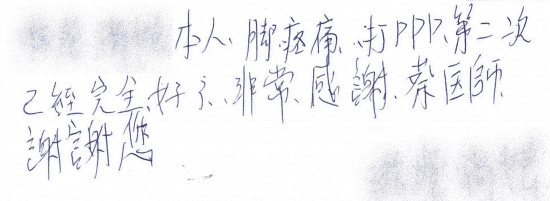 本人、脚疼痛、打PPP、第二次
已經完全好了、非常、感謝、蔡医師
謝謝您